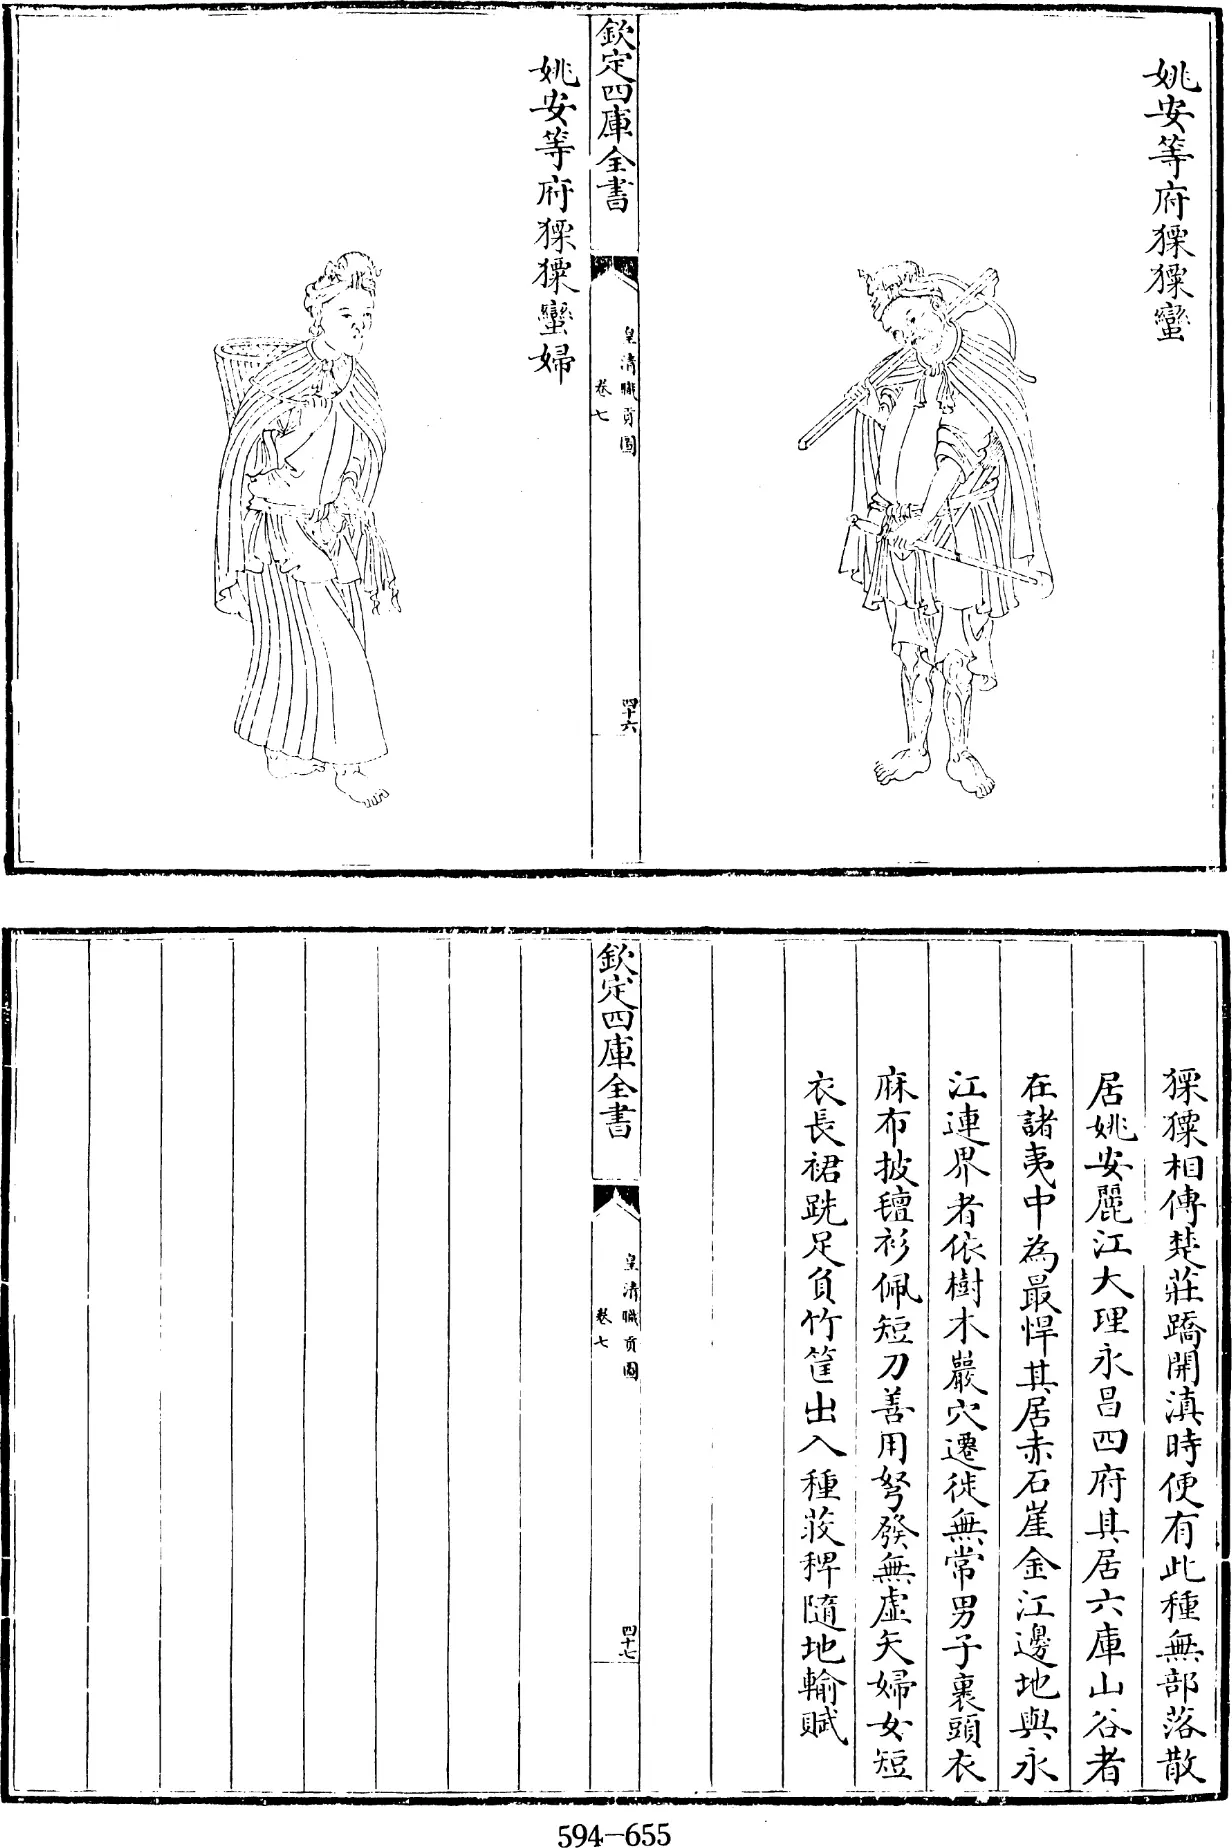 姚安等府猓猓蠻
欽定四庫全書
皇清職貢圖
卷七
四十六
姚安等府猓猓蠻婦
猓猓相傳楚莊蹻開滇時便有此種無部落散
居姚安麗江大理永昌四府其居六庫山谷者
在諸夷中為最悍其居赤石崖金江邊地與永
江連界者依樹木巖穴遷徙無常男子裹頭衣
麻布披氊衫佩短刀善用弩發無虛矢婦女短
衣長裙跣足負竹筐出入種荍稗隨地輸賦
欽定四庫全書
皇清職貢圖
卷七
四十七
594-655